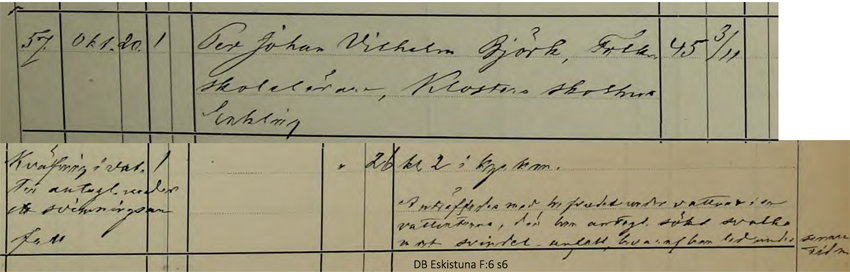 57 Okt. 20. 1 Per Johan Vilhelm Björk, Folk- 45 3/11
skolelärare, Klosters skolhus
Enkling
Kväfning i vat- 1 " 26 kl 2 i kyrkan.
ten antagl. under
ett svimningsan-
fall
Anträffades med hufvudet under vattnet i en
vattentunna, der han antagl. sökt svalka
mot svindel-anfall, hvaraf han led under senare
tiden
DB Eskistuna F:6 s6